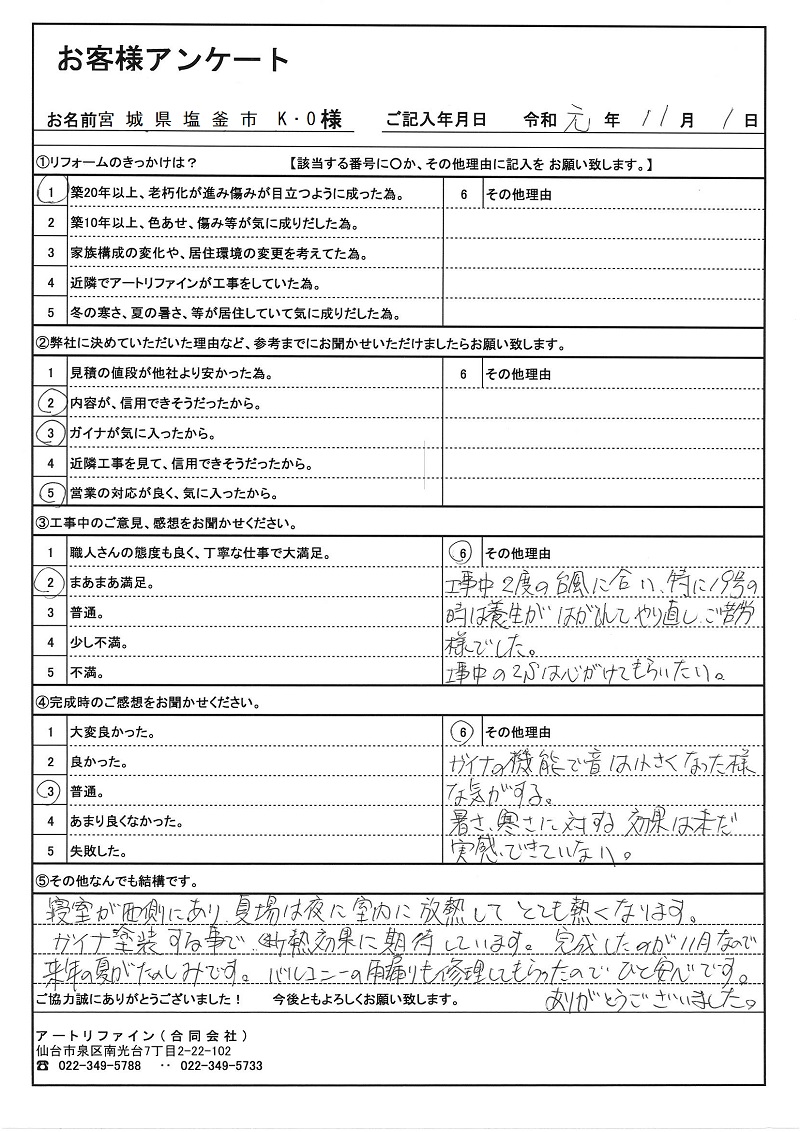 お客様アンケート
お名前 宮城県塩釜市 K・O様 ご記入年月日 令和 元 年 11 月 1 日
①リフォームのきっかけは? 【該当する番号に〇か、その他理由に記入を お願い致します。】
1 築20年以上、老朽化が進み傷みが目立つように成った為。 6 その他理由
2 築10年以上、色あせ、傷み等が気に成りだした為。
3 家族構成の変化や、居住環境の変更を考えてた為。
4 近隣でアートリファインが工事をしていた為。
5 冬の寒さ、夏の暑さ、等が居住していて気に成りだした為。
②弊社に決めていただいた理由など、参考までにお聞かせいただけましたらお願い致します。
1 見積の値段が他社より安かった為。 6 その他理由
2 内容が、信用できそうだったから。
3 ガイナが気に入ったから。
4 近隣工事を見て、信用できそうだったから。
5 営業の対応が良く、気に入ったから。
③工事中のご意見、感想をお聞かせください。
1 職人さんの態度も良く、丁寧な仕事で大満足。 6 その他理由
2 まあまあ満足。 工事中2度の台風に合い、特に19号の
3 普通。 時は養生がはがれてやり直し、ご苦労
4 少し不満。 様でした。
5 不満。 工事中の2Sは心がけてもらいたい。
④完成時のご感想をお聞かせください。
1 大変良かった。 6 その他理由
2 良かった。 ガイナの機能で音は小さくなった様
3 普通。 な気がする。
4 あまり良くなかった。 暑さ、寒さに対する効果は未だ
5 失敗した。 実感できていない。
⑤その他なんでも結構です。
寝室が西側にあり、夏場は夜に室内に放熱してとても熱くなります。
ガイナ塗装する事で断熱効果に期待しています。完成したのが11月なので
来年の夏がたのしみです。バルコニーの雨漏りも修理してもらったのでひと安心です。
ご協力誠にありがとうございました! 今後ともよろしくお願い致します。 ありがとうございました。
アートリファイン(合同会社)
仙台市泉区南光台7丁目2-22-102
☎ 022-349-5788 ‥ 022-349-5733